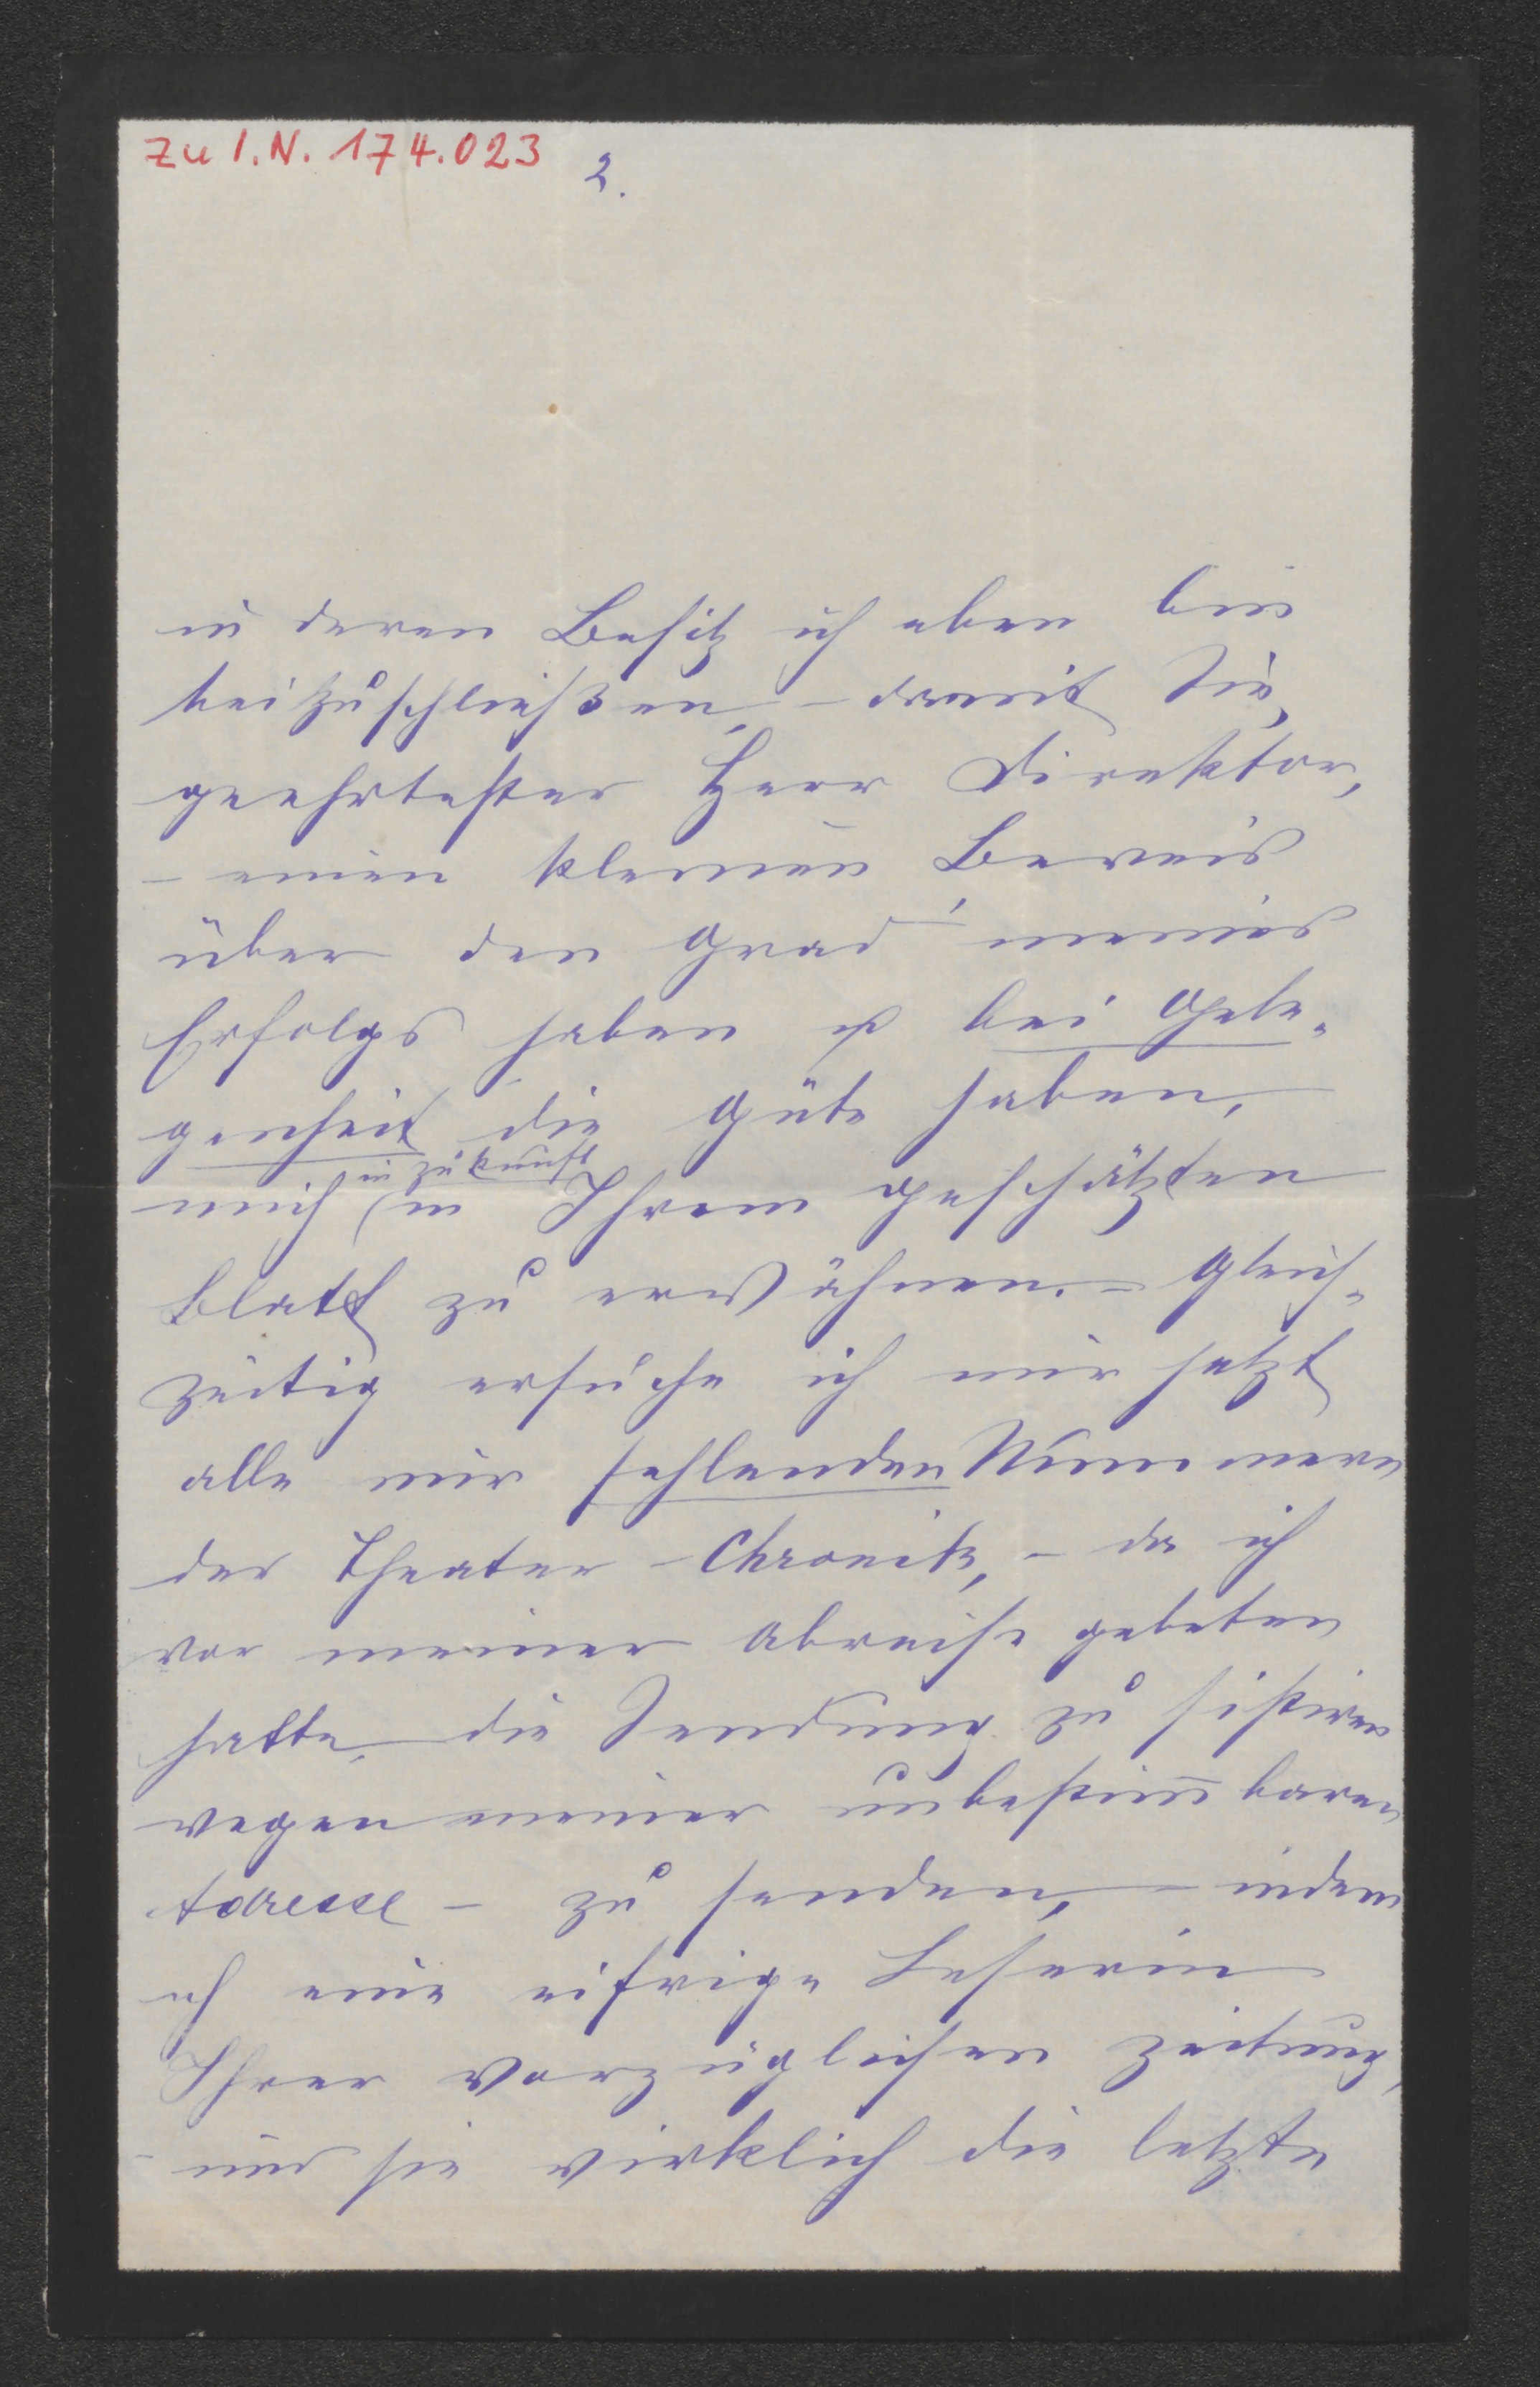 zu I.N. 174.023
2.
in deren Besitz ich eben bin
beizuschließen, – damit Sie,
geehrtester Herr Direktor,
– einen kleinen Beweis
über den Grad meines
Erfolgs haben & bei Gele-
genheit die Güte haben,
in Zukunft
mich in Ihrem geschätzten
Blatt zu erwähnen. – Gleich-
zeitig ersuche ich mir jetzt
alle mir fehlenden Nummern
der Theater-Chronik, – da ich
vor meiner Abreise gebeten
hatte, die Sendung zu sistiren
wegen meiner unbestim̅baren
Adresse – zu senden, – indem
ich eine eifrige Leserin
Ihrer vorzüglichen Zeitung,
– und sie wirklich die letzte